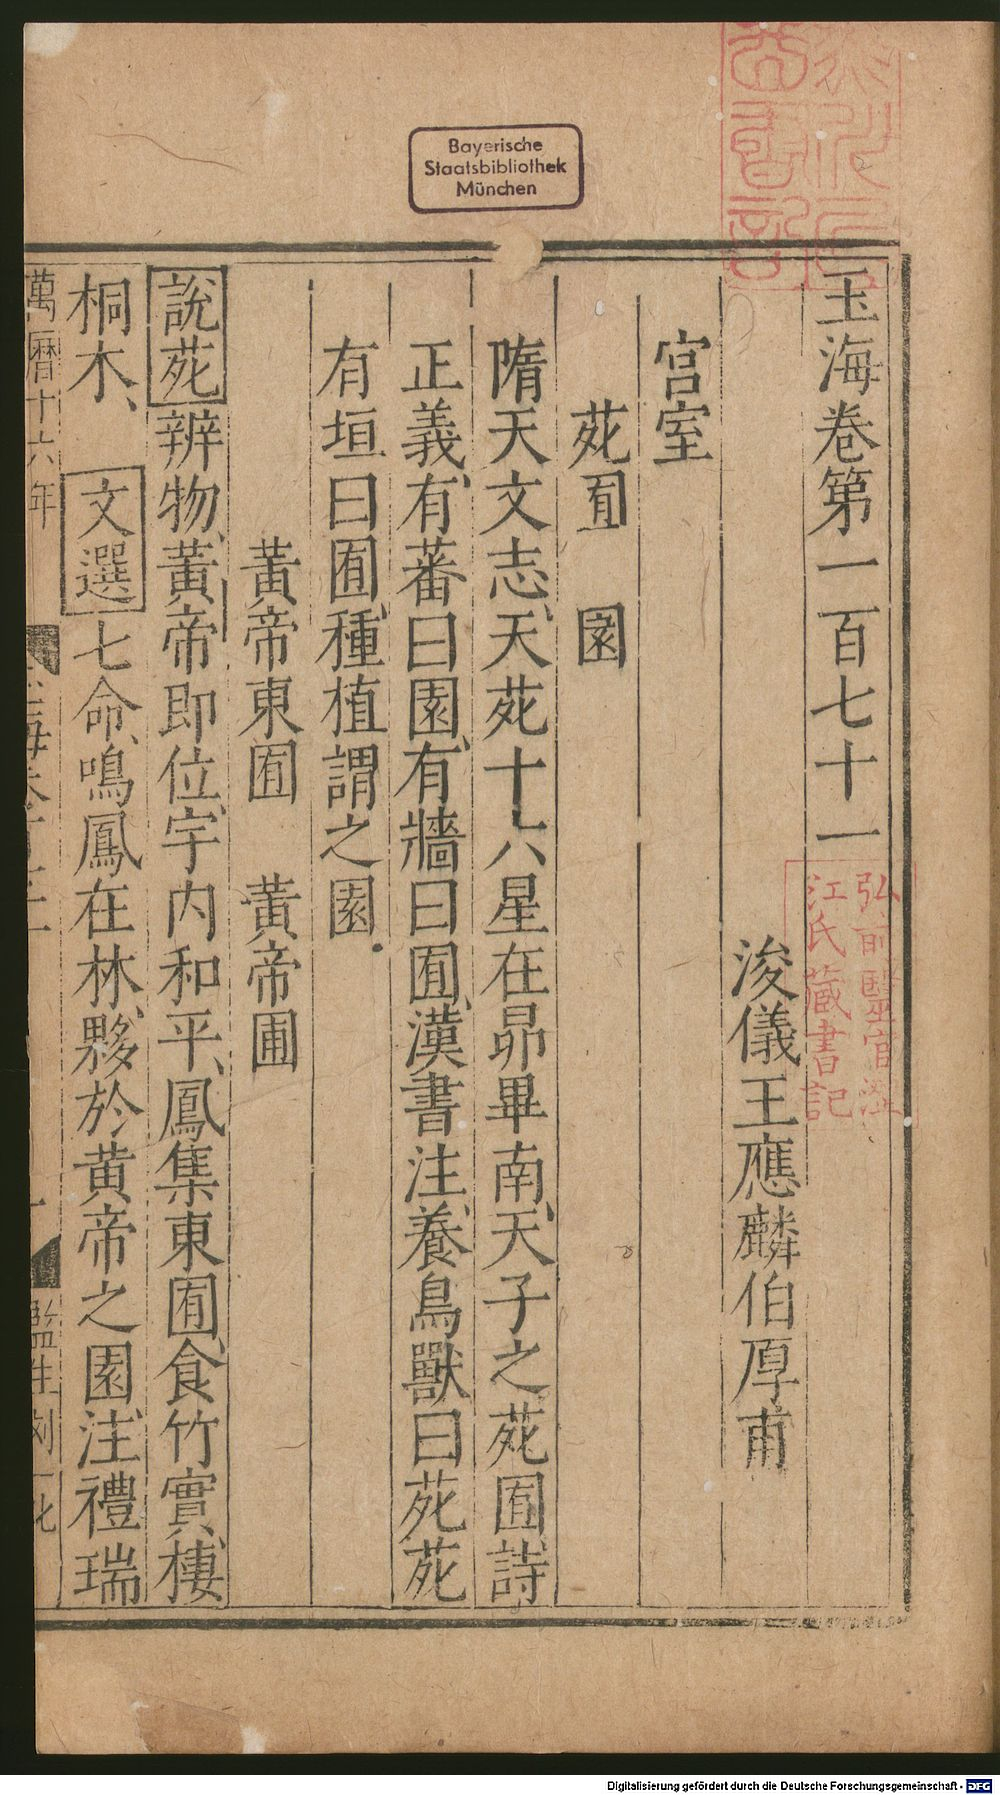 Bayerische
Staatsbibliothek
München
玉海卷第一百七十一
浚儀王應麟伯厚甫
宮室
苑囿　園
隋天文志、天苑十六星在昴畢南、天子之苑囿、詩
正義、有蕃曰園、有牆曰囿、漢書注、養鳥獸曰苑苑
有垣曰囿、種植謂之園
黃帝東囿　黃帝圃
說苑辨物、黃帝即位、宇内和平、鳳集東囿、食竹實、棲
桐木、文選七命、鳴鳳在林、夥於黄帝之園、注、禮瑞
萬曆十六年
監生刘
弘前醫官澁
江氏藏書記
Digitalisierung gefördert durch die Deutsche Forschungsgemeinschaft - DFG